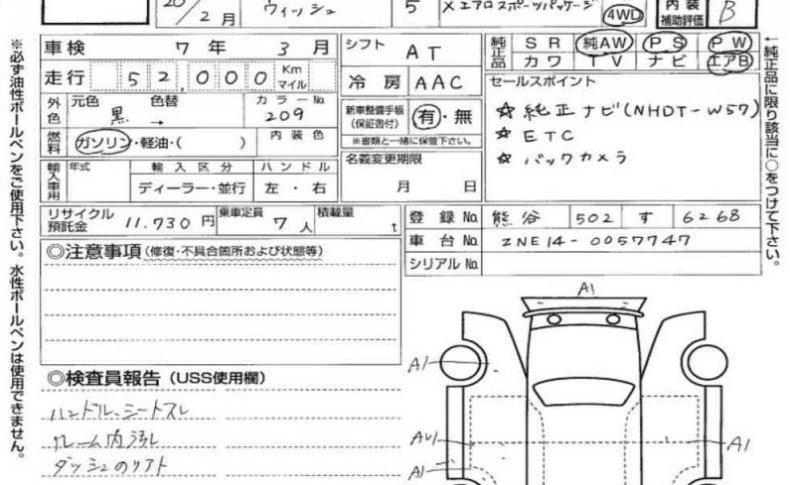 20/2月 ウィッシュ 5 Xエアロスポーツパッケージ 4WD 内装補助評価 B
車検 7年 3月
走行 52,000 Km マイル
外色 元色 黒 色替 → カラーNo 209
燃料 ガソリン・軽油・( ) 内装色
輸入車用 年式 輸入区分 ディーラー・並行 ハンドル 左・右
シフト AT
冷房 AAC
新車整備手帳(保証書付) 有・無
※書類と一緒に保管下さい。
名義変更期限
月 日
純正品 SR 純AW PS PW
カワ TV ナビ エアB
セールスポイント
☆ 純正ナビ(NHDT-W57)
☆ ETC
☆ バックカメラ
リサイクル預託金 11.730円 乗車定員 7人 積載量 t
登録No. 熊谷 502 す 6268
車台No. ZNE14-0057747
シリアルNo.
◎注意事項(修復・不具合箇所および状態等)
◎検査員報告(USS使用欄)
ハンドル、シートスレ
ルーム内汚れ
ダッシュのリアト
A1
A1
AU1
A1
A1
※必ず油性ボールペンをご使用下さい。水性ボールペンは使用できません。
←純正品に限り該当に○をつけて下さい。